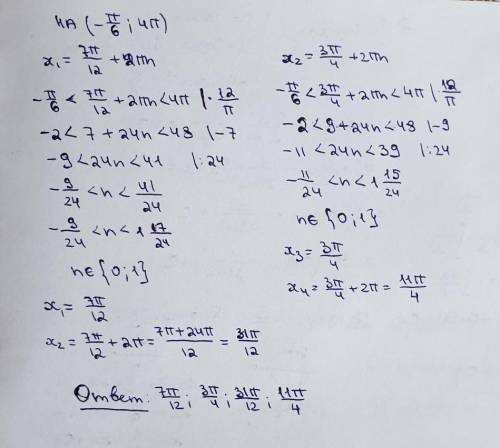 на (-π/6; 4π)
x₁ = 7π/12 + 2πn
-π/6 < 7π/12 + 2πn < 4π |· 12/π
-2 < 7 + 24n < 48 |-7
-9 < 24n < 41 |:24
-9/24 < n < 41/24
-9/24 < n < 1 17/24
n ∈ {0; 1}
x₁ = 7π/12
x₂ = 7π/12 + 2π = (7π + 24π)/12 = 31π/12
x₂ = 3π/4 + 2πn
-π/6 < 3π/4 + 2πn < 4π |· 12/π
-2 < 9 + 24n < 48 |-9
-11 < 24n < 39 |:24
-11/24 < n < 1 15/24
n ∈ {0; 1}
x₃ = 3π/4
x₄ = 3π/4 + 2π = 11π/4
Ответ: 7π/12; 3π/4; 31π/12; 11π/4